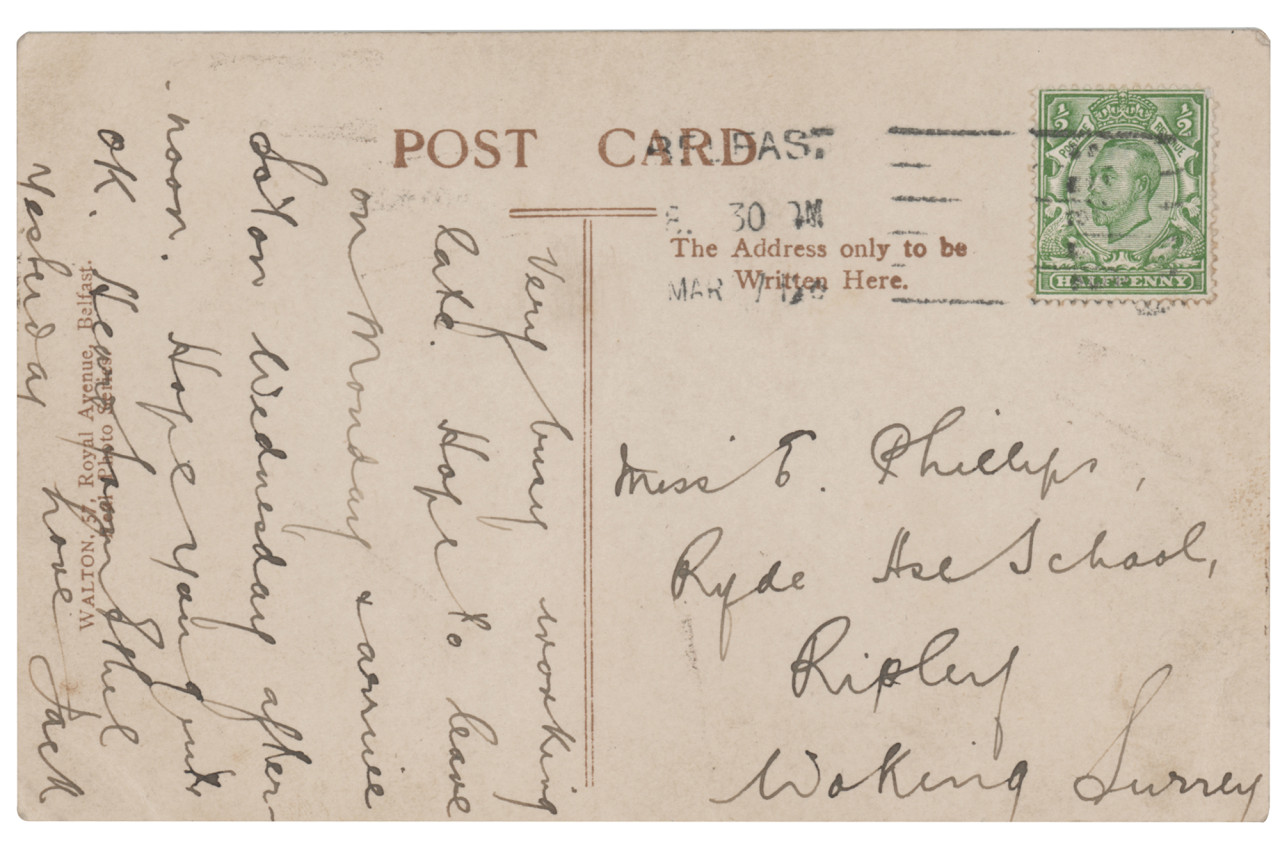 POST CARD
BELFAST
30 PM
MAR
½ ½
POSTAGE REVENUE
HALFPENNY
The Address only to be
Written Here.
Very busy working
late. Hope to leave
on Monday & arrive
So'ton Wednesday after-
noon. Hope you quite
OK. Heard from Ethel
yesterday Love Jack
WALTON, 57, Royal Avenue, Belfast.
Real Photo Series.
Miss E. Phillips,
Ryde Hse School,
Ripley
Woking Surrey